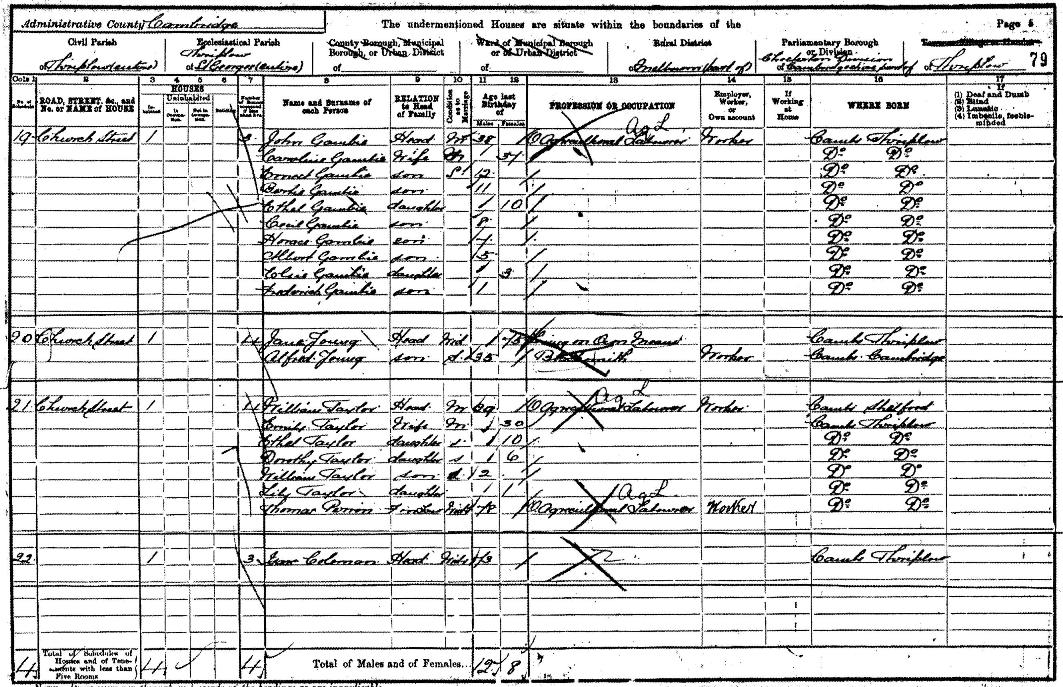 Administrative County Cambridge The undermentioned Houses are situate within the boundaries of the Page 5
Civil Parish Ecclesiastical Parish County Borough, Municipal Borough, or Urban District Ward of Municipal Borough or of Urban District Rural District Parliamentary Borough or Division
of Thriplow (entire) of Thriplow St Georges (entire) of of of of Thriplow 79
Cols 1 2 3 4 5 6 7 8 9 10 11 12 13 14 15 16 17
ROAD, STREET, &c., and No. or NAME of HOUSE HOUSES Uninhabited Name and Surname of each Person RELATION to Head of Family Condition as to Marriage Age last Birthday of Males Females PROFESSION OR OCCUPATION Employer, Worker, or Own account If Working at Home WHERE BORN If (1) Deaf and Dumb (2) Blind (3) Lunatic (4) Imbecile, feeble-minded
19 Church Street 1 3 John Gambie Head M 38 Agricultural Labourer Ag L Worker Cambs Thriplow
Caroline Gambie Wife M 37 Do Do
Ernest Gambie son S 12 Do Do
Gambie son 11 Do Do
Ethel Gambie daughter 10 Do Do
Cecil Gambie son 8 Do Do
Horace Gambie son Do Do
Albert Gambie son 5 Do Do
Elsie Gambie daughter 3 Do Do
Frederick Gambie son 1 Do Do
20 Church Street 1 4 Jane Young Head Wid 75 Living on Own Means Cambs Thriplow
Alfred Young son S 35 Worker Cambs Cambridge
21 Church Street 1 4 William Taylor Head M Agricultural Labourer Ag L Worker Cambs Shelford
Emily Taylor Wife M 30 Cambs Thriplow
Ethel Taylor daughter S 10 Do Do
Dorothy Taylor daughter S 6 Do Do
William Taylor son S 2 Do Do
Lily Taylor daughter 1 Do Do
Thomas Perrin Agricultural Labourer Ag L Worker Do Do
22 1 3 Coleman Head Cambs Thriplow
4 Total of Schedules of Houses and of Tenements with less than Five Rooms 4 4 Total of Males and of Females... 12 8